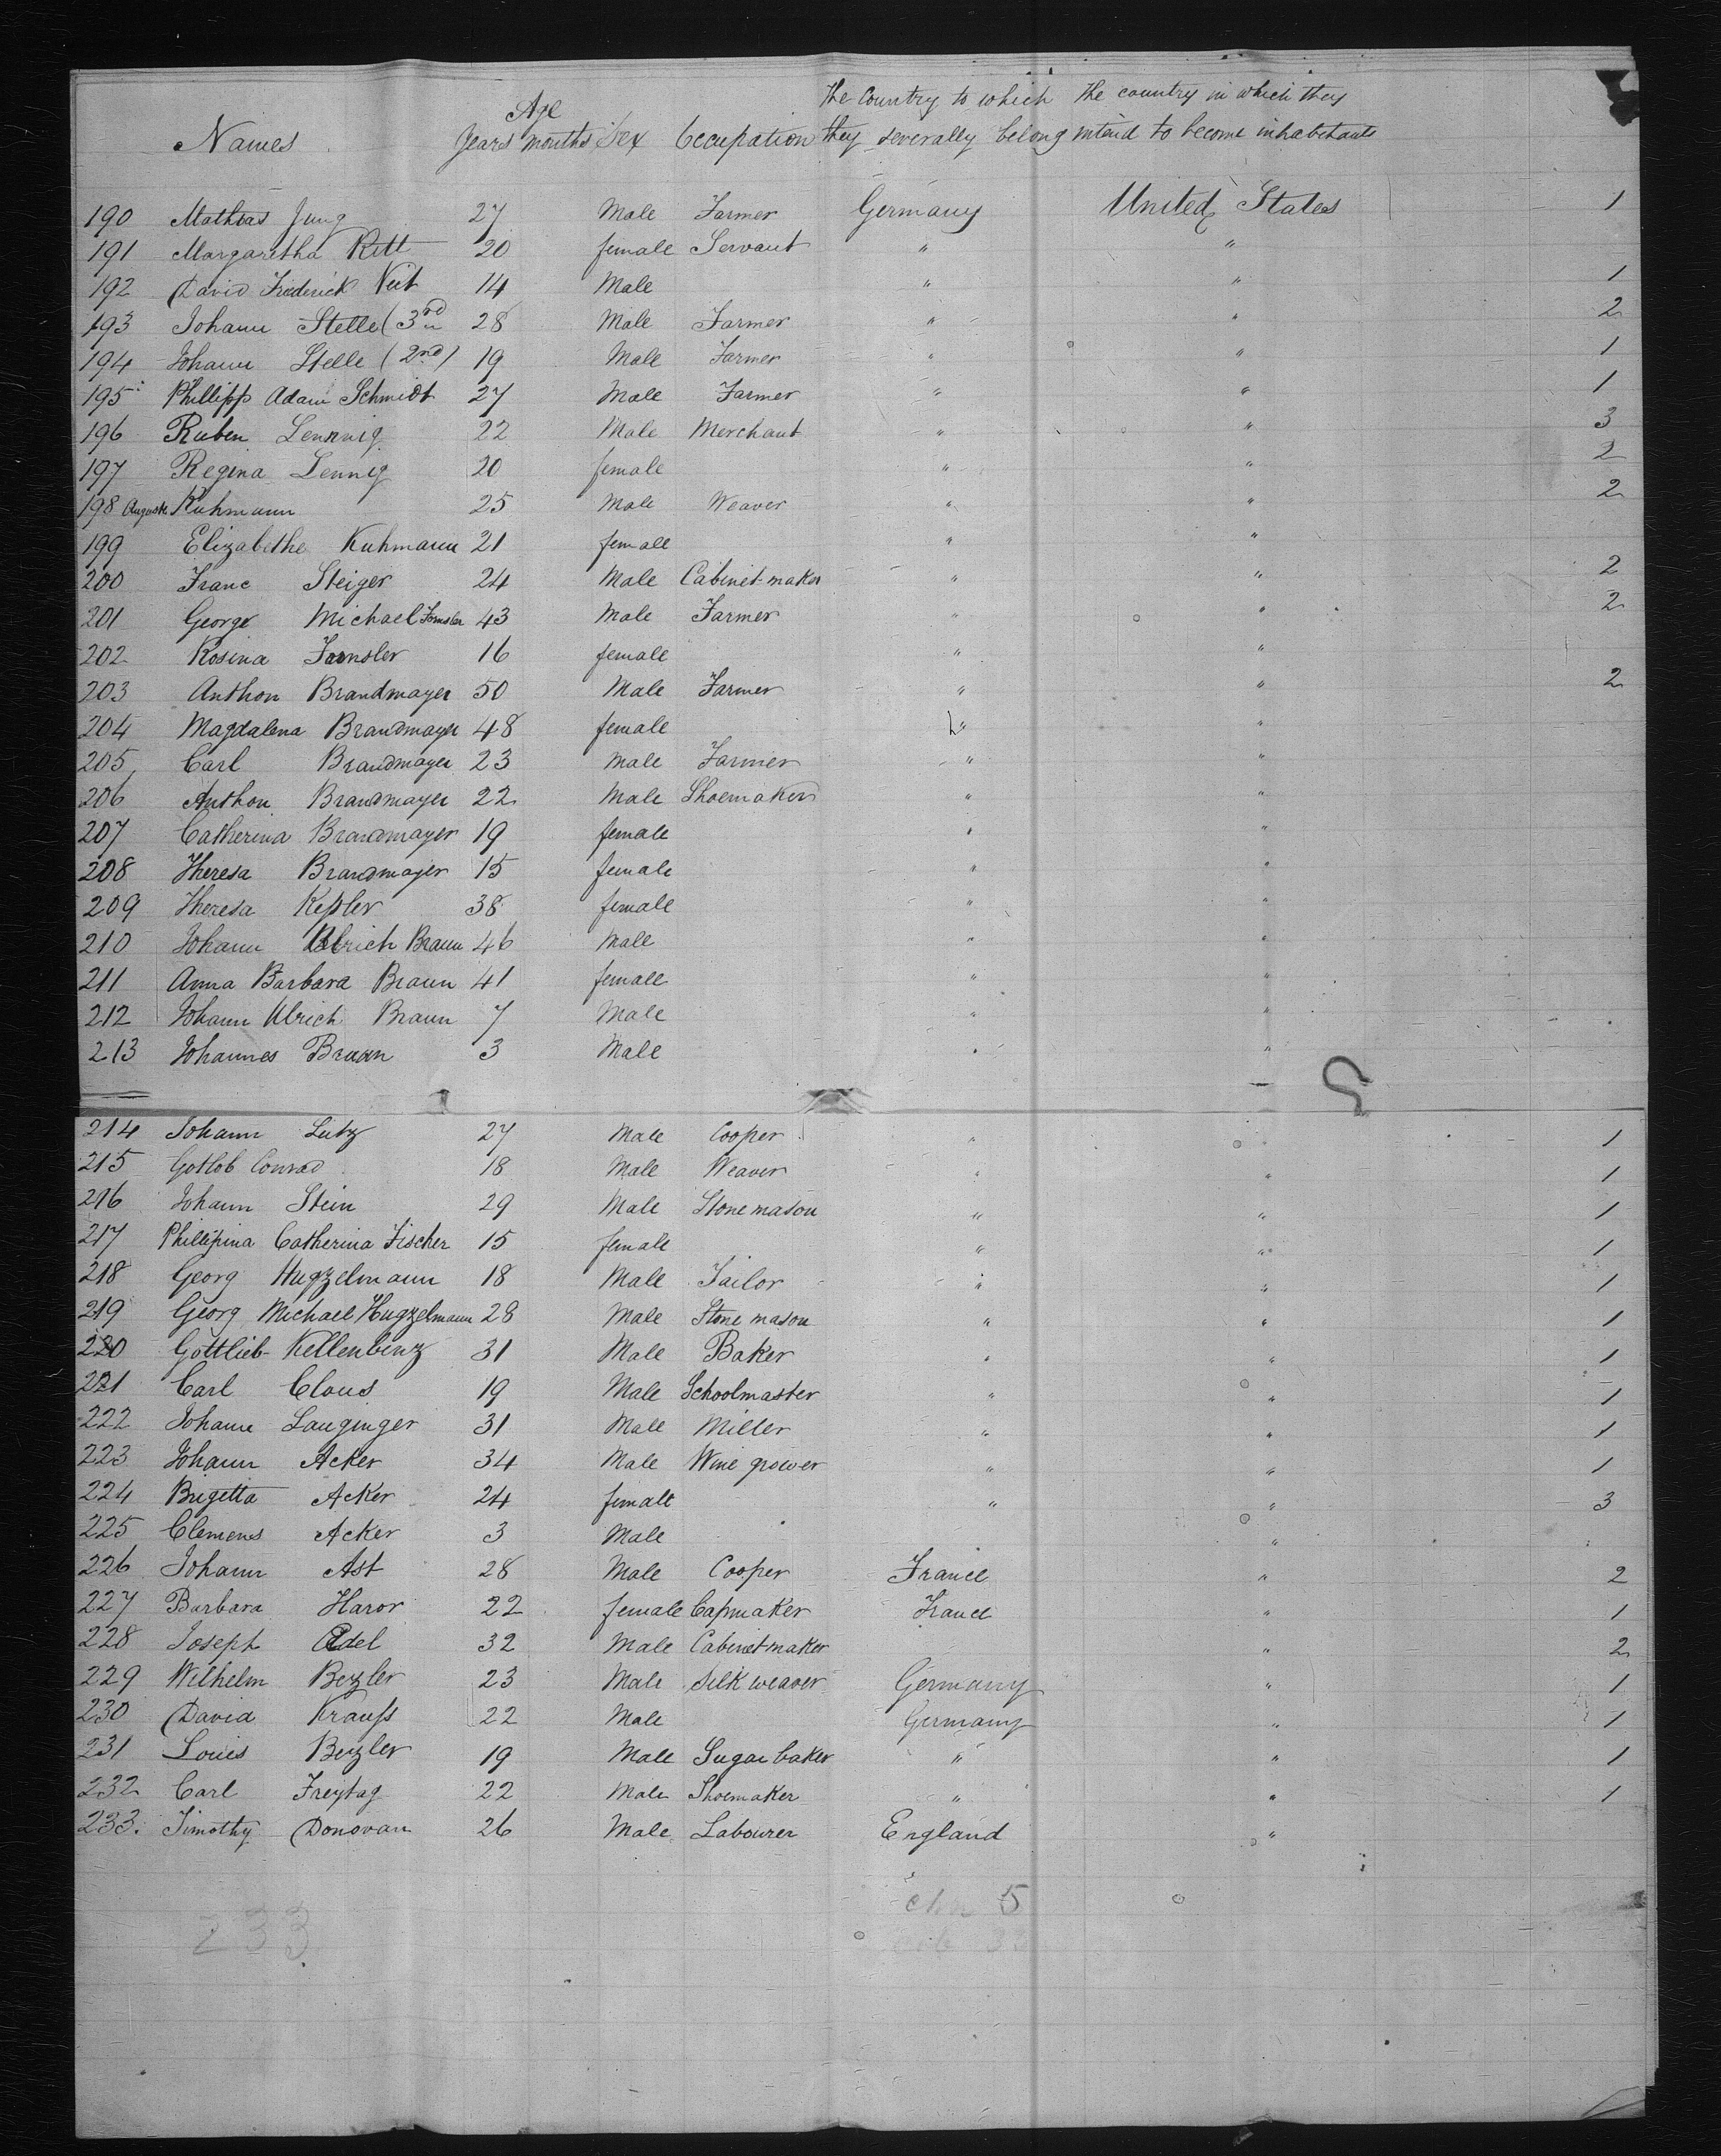 Age The Country to which the country in which they
Names Years months Sex Occupation they severally belong intend to become inhabitants
190 Mathias Jung 27 Male Farmer Germany United States 1
191 Margaretha Ritt 20 female Servant " "
192 David Frederick Veit 14 Male " " 1
193 Johann Stelle (3rd 28 Male Farmer " " 2
194 Johann Stelle (2nd) 19 Male Farmer " " 1
195 Phillipp Adam Schmidt 27 Male Farmer " " 1
196 Ruben Lennnig 22 Male Merchant " " 3
197 Regina Lennig 20 female " " 2
198 August Kuhmann 25 Male Weaver " " 2
199 Elizabethe Kuhmann 21 female " "
200 Franc Steiger 24 Male Cabinet-maker " " 2
201 George Michael 43 Male Farmer " " 2
202 Rosina 16 female " "
203 Anthon Brandmayer 50 Male Farmer " " 2
204 Magdalena Brandmayer 48 female " "
205 Carl Brandmayer 23 Male Farmer " "
206 Anthon Brandmayer 22 Male Shoemaker " "
207 Catherina Brandmayer 19 female " "
208 Theresa Brandmayer 15 female " "
209 Theresa Kepler 38 female " "
210 Johann Ulrich Braun 46 Male " "
211 Anna Barbara Braun 41 female " "
212 Johann Ulrich Braun 7 Male " "
213 Johannes Braun 3 Male " "
214 Johann Lutz 27 Male Cooper " " 1
215 Gotlob Conrad 18 Male Weaver " " 1
216 Johann Stein 29 Male Stone mason " " 1
217 Phillipina Catherina Fischer 15 female " " 1
218 Georg Hugzelmann 18 Male Tailor " " 1
219 Georg Michael Hugzelmann 28 Male Stone mason " " 1
220 Gottlieb Kellenbenz 31 Male Baker " " 1
221 Carl Claus 19 Male Schoolmaster " " 1
222 Johann Lauginger 31 Male Miller " " 1
223 Johann Acker 34 Male Wine grower " " 1
224 Brigetta Acker 24 female " " 3
225 Clemens Acker 3 Male "
226 Johann Ast 28 Male Cooper France " 2
227 Barbara Haror 22 female Capmaker France " 1
228 Joseph Edel 32 Male Cabinetmaker " 2
229 Wilhelm Bezler 23 Male Silk weaver Germany " 1
230 David Krauss 22 Male Germany " 1
231 Louis Bezler 19 Male Sugar baker " " 1
232 Carl Freytag 22 Male Shoemaker " " 1
233. Timothy Donovan 26 Male Labourer England "
chn 5
233